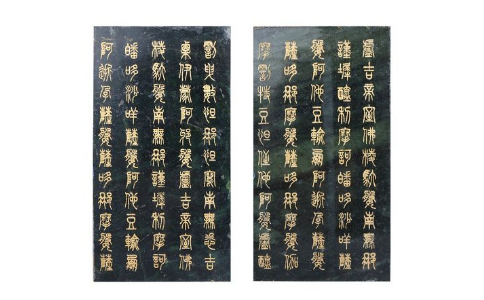 盧吉帝室佛楞馱婆南無那
謹墀醯利摩訶皤哆沙咩薩
婆阿他豆輸朋阿逝孕薩婆
薩哆那摩婆薩哆那摩婆伽
摩罰特豆怛姪他阿婆盧醯
罰曳數怛那怛寫南無悉吉
栗伊蒙阿唎婆盧吉帝室佛
楞馱婆南無那謹墀利摩訶
皤哆沙咩薩婆阿他豆輸朋
阿逝孕薩婆薩哆那摩婆